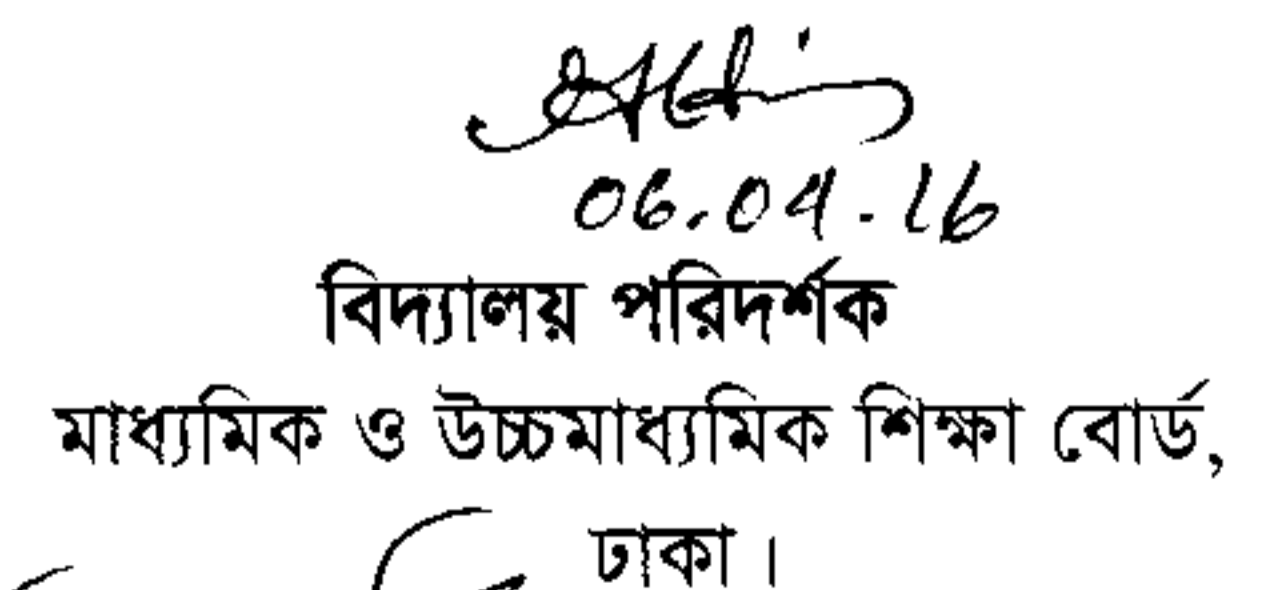 06.04.16
বিদ্যালয় পরিদর্শক
মাধ্যমিক ও উচ্চমাধ্যমিক শিক্ষা বোর্ড,
ঢাকা।